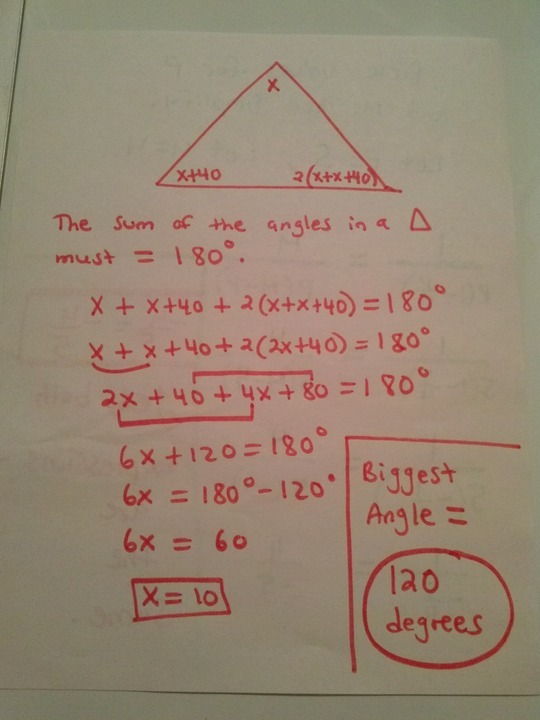 x
x+40
2(x+x+40)
The sum of the angles in a Δ
must = 180°.
x + x+40 + 2(x+x+40) = 180°
x + x + 40 + 2(2x+40) = 180°
2x + 40 + 4x + 80 = 180°
6x + 120 = 180°
6x = 180° - 120°
6x = 60
x = 10
Biggest
Angle =
120
degrees